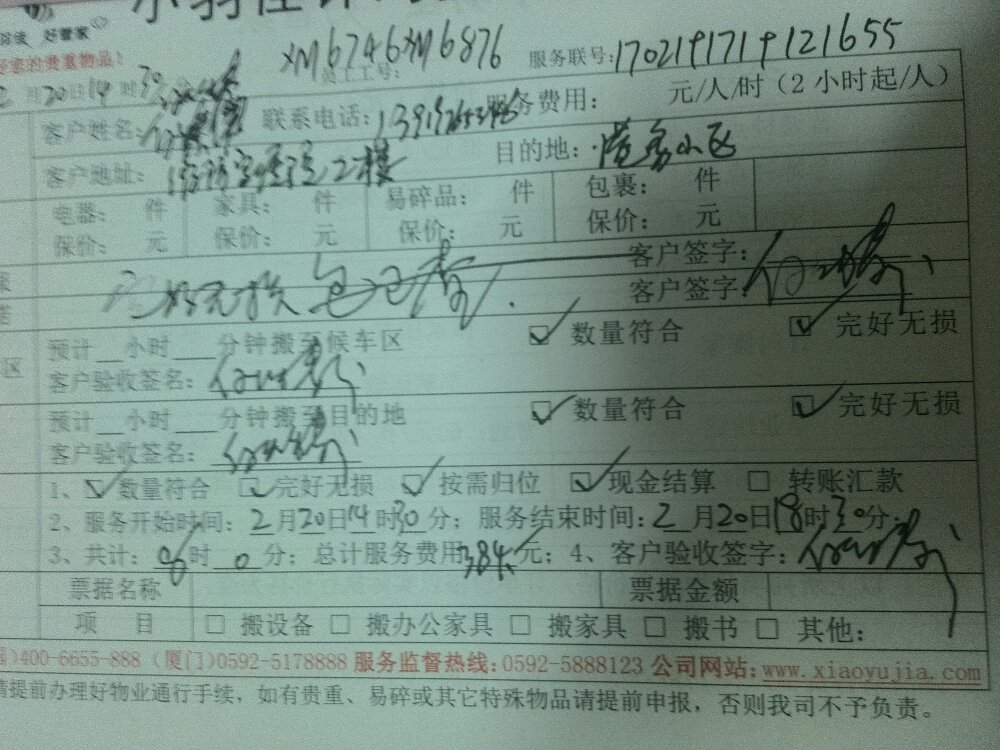 好管家
的贵重物品!
XM6746XM6876
员工工号:
服务联号:1702191719121655
月20日14时30
客户姓名:
联系电话:
服务费用: 元/人/时(2小时起/人)
客户地址: 2楼
目的地: 小区
电器: 件 家具: 件 易碎品: 件 包裹: 件
保价: 元 保价: 元 保价: 元 保价: 元
客户签字:
已好无损
客户签字:
预计__小时___分钟搬至候车区
数量符合 完好无损
客户验收签名:
预计__小时___分钟搬至目的地
数量符合 完好无损
客户验收签名:
1、数量符合 完好无损 按需归位 现金结算 □ 转账汇款
2、服务开始时间:2月20日14时30分;服务结束时间:2月20日18时30分;
3、共计:8时0分;总计服务费用384元;4、客户验收签字:
票据名称 票据金额
项 目 □ 搬设备 □ 搬办公家具 □ 搬家具 □ 搬书 □ 其他:
)400-6655-888 (厦门)0592-5178888 服务监督热线:0592-5888123 公司网站:www.xiaoyujia.com
请提前办理好物业通行手续,如有贵重、易碎或其它特殊物品请提前申报,否则我司不予负责。